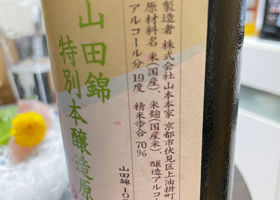 山田錦
特別本醸造原
製造者 株式会社山本本家 京都市伏見区上油掛町
原材料名 米(国産)、米麹(国産米)、醸造アルコ
アルコール分 19度 精米歩合 70%
山田錦10